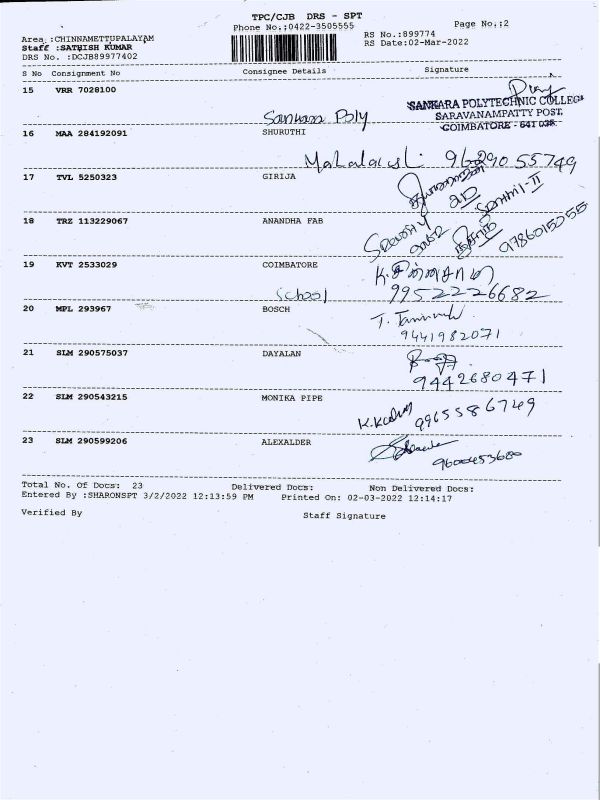 TPC/CJB DRS - SPT
Phone No.:0422-3505555
Page No.:2
Area :CHINNAMETTUPALAYAM
RS No.:899774
Staff :SATHISH KUMAR
RS Date:02-Mar-2022
DRS No. :DCJB89977402
S No Consignment No Consignee Details Signature
15 VRR 7028100
Sankara Poly
SANKARA POLYTECHNIC COLLEGE
SARAVANAMPATTY POST,
COIMBATORE - 641 035.
16 MAA 284192091 SHURUTHI
Mahalakshmi 9629055749
17 TVL 5250323 GIRIJA
18 TRZ 113229067 ANANDHA FAB
9786015255
19 KVT 2533029 COIMBATORE
School
9952226682
20 MPL 293967 BOSCH
9441982071
21 SLM 290575037 DAYALAN
9442680471
22 SLM 290543215 MONIKA PIPE
9965586749
23 SLM 290599206 ALEXALDER
9600453680
Total No. Of Docs: 23 Delivered Docs: Non Delivered Docs:
Entered By :SHARONSPT 3/2/2022 12:13:59 PM Printed On: 02-03-2022 12:14:17
Verified By Staff Signature